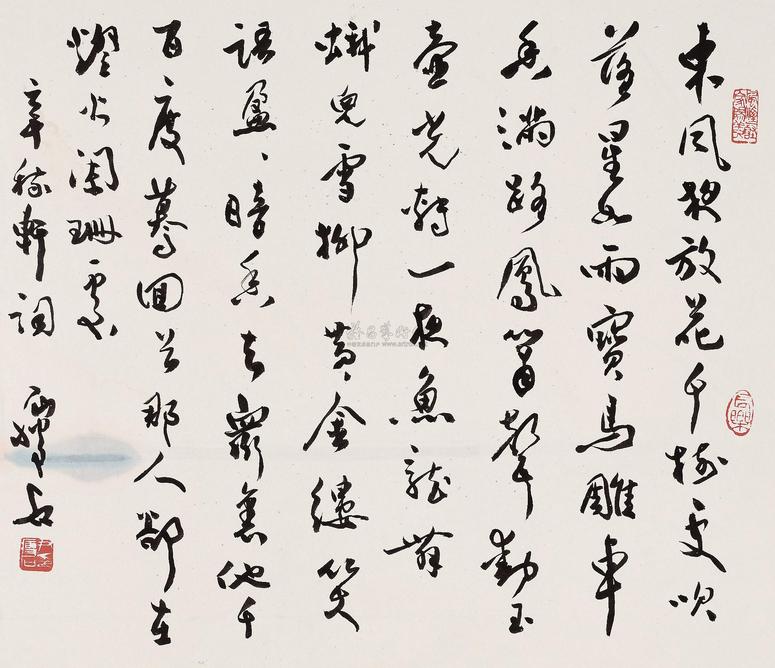 東風夜放花千樹更吹
落星如雨寶馬雕車
香滿路鳳簫聲動玉
壺光轉一夜魚龍舞
蛾兒雪柳黃金縷笑
語盈々暗香去衆裏他千
百度驀回首那人郤在
燈火闌珊處
辛稼軒詞